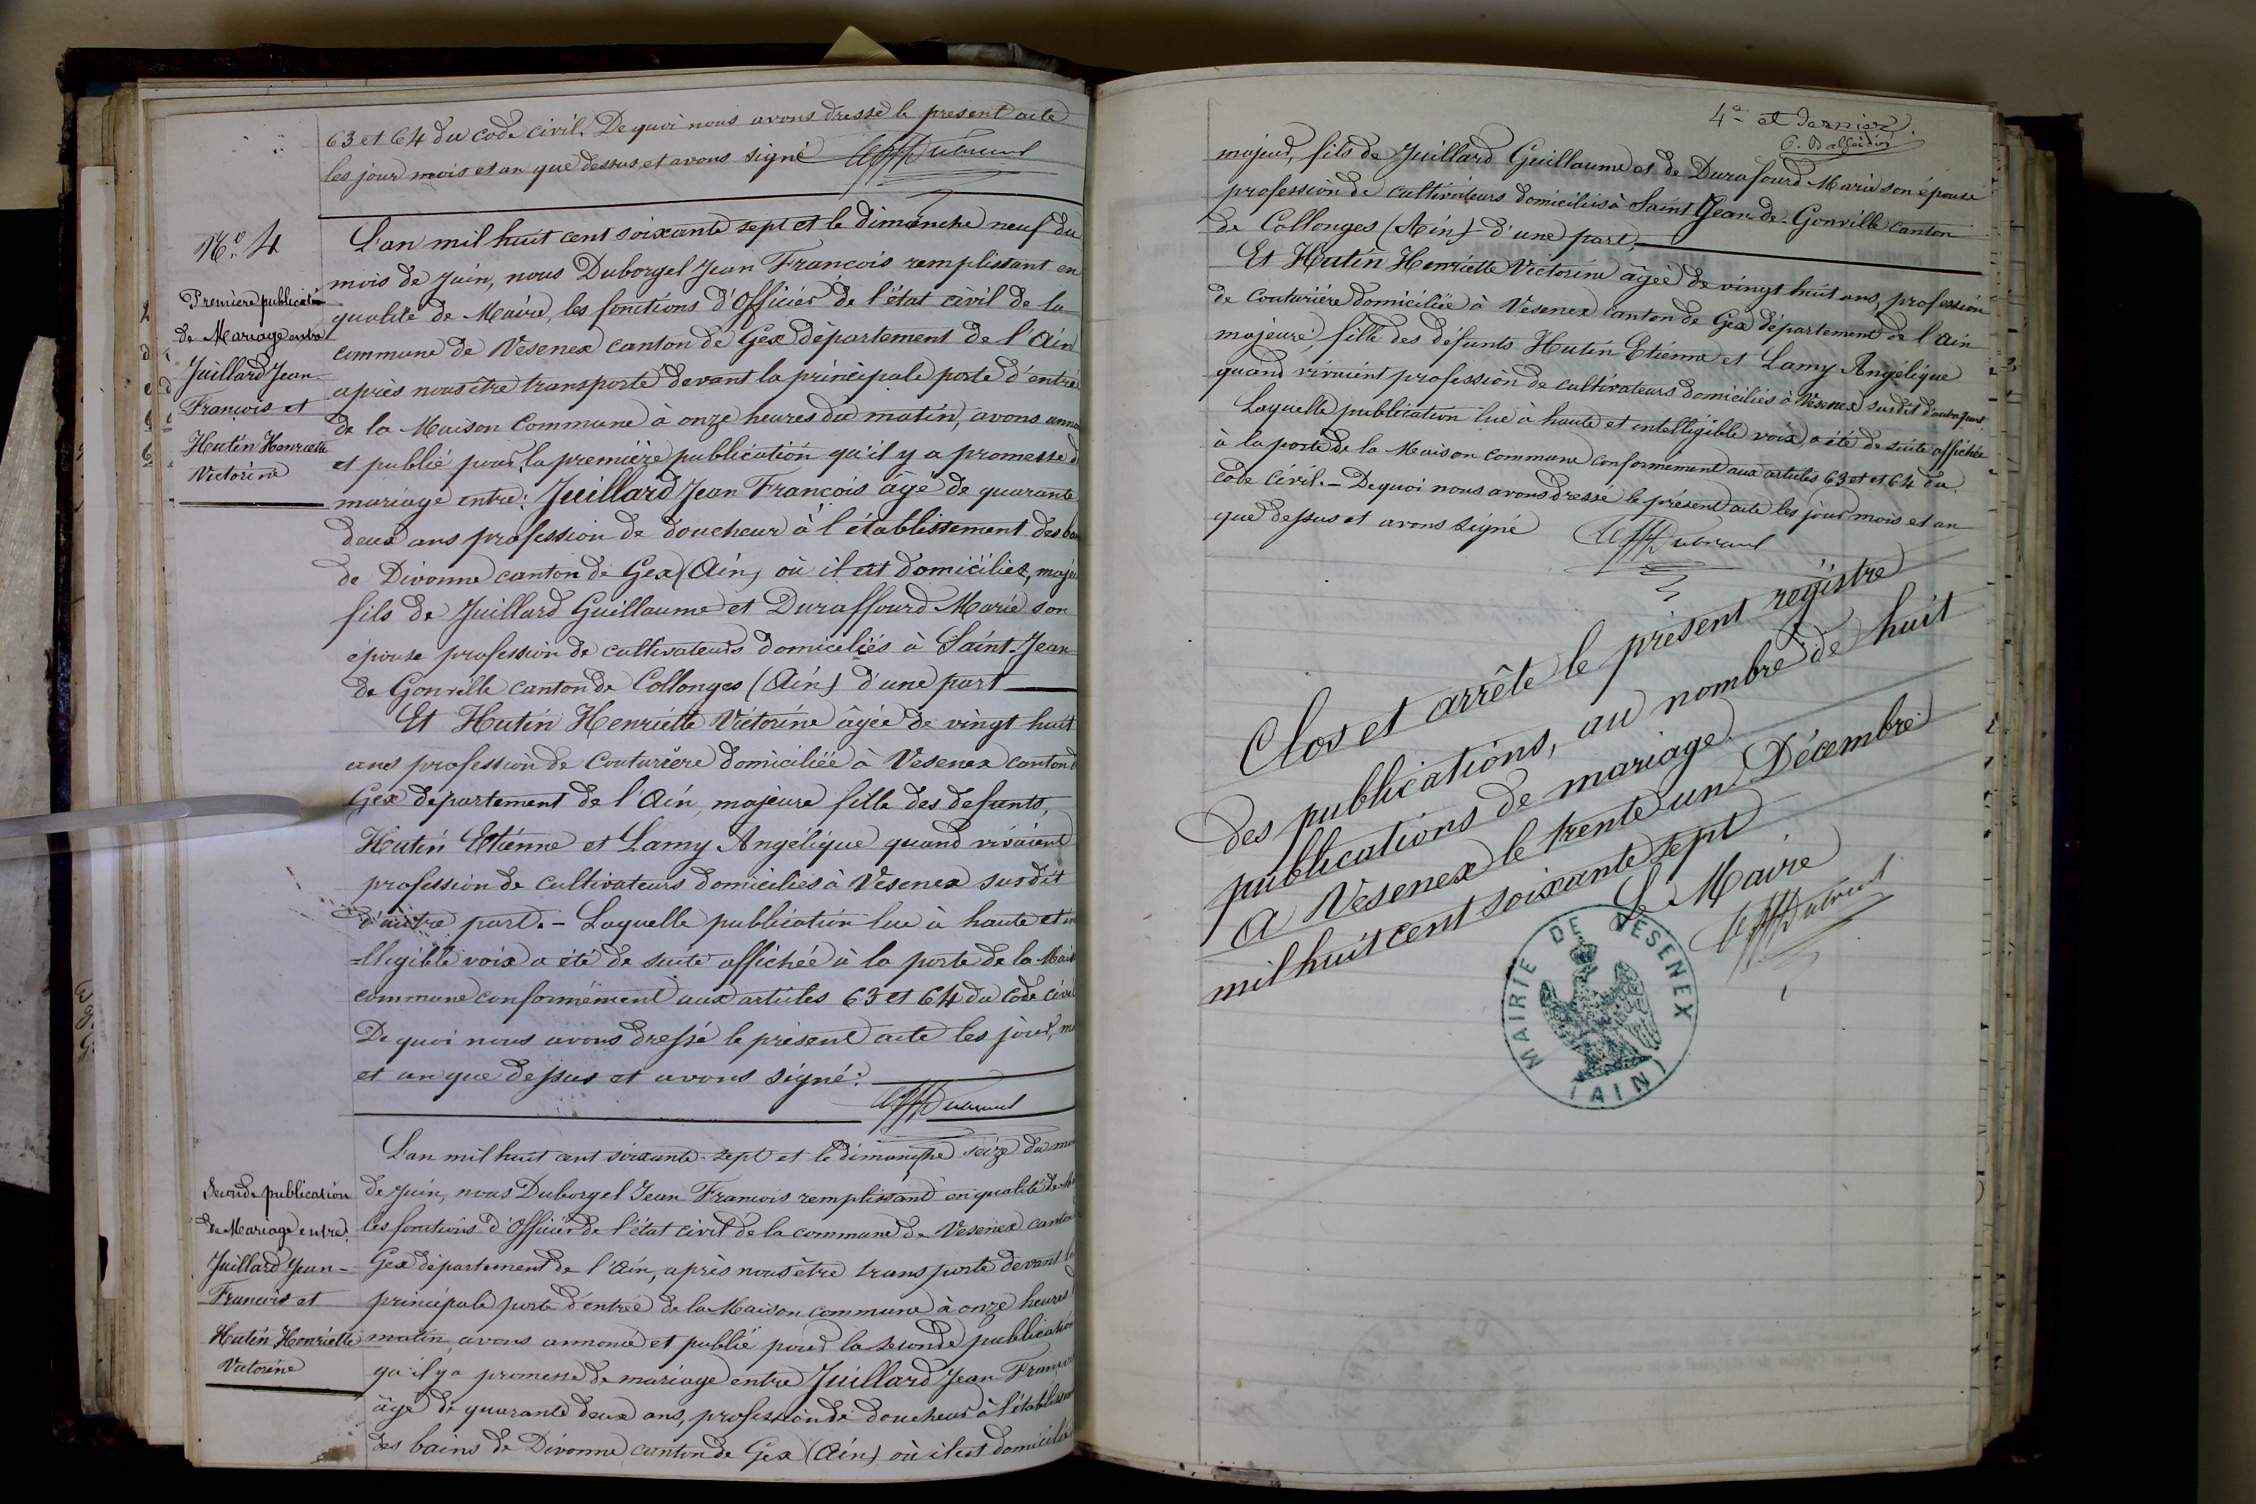 63 et 64 du code civil. De quoi nous avons dressé le présent acte
les jour mois et an que dessus, et avons signé
N.º 4
Première publication
de Mariage entre
Juillard Jean
François et
Hutin Henriette
Victorine
L'an mil huit cent soixante sept et le dimanche neuf du
mois de Juin, nous Duborgel Jean François remplissant en
qualité de Maire, les fonctions d'Officier de l'état civil de la
commune de Vesenex canton de Gex département de l'Ain
après nous être transporté devant la principale porte d'entrée
de la Maison Commune à onze heures du matin, avons
et publié pour la première publication qu'il y a promesse
mariage entre: Juillard Jean François âgé de quarante
deux ans profession de doucheur à l'établissement des
de Divonne canton de Gex (Ain) où il est domicilié,
fils de Juillard Guillaume et Duraffourd Marie son
épouse profession de cultivateurs domiciliés à Saint-Jean
de Gonville canton de Collonges (Ain) d'une part
Et Hutin Henriette Victorine âgée de vingt huit
ans profession de Couturière domiciliée à Vesenex canton
Gex département de l'Ain, majeure fille des defunts,
Hutin Etienne et Lamy Angélique quand vivaient
profession de cultivateurs domiciliés à Vesenex susdit
d'autre part. - Laquelle publication lue à haute et in
=lligible voix a été de suite affichée à la porte de la
commune conformément aux articles 63 et 64 du Code
De quoi nous avons dressé le présent acte les jour,
et an que dessus et avons signé:
Seconde publication
de Mariage entre
Juillard Jean-
François et
Hutin Henriette
Victorine
L'an mil huit cent soixante-sept et le dimanche seize du
de Juin, nous Duborgel Jean François remplissant en qualité de
les fonctions d'Officier de l'état civil de la commune de Vesenex canton
Gex département de l'Ain, après nous être transporté devant la
principale porte d'entrée de la Maison commune à onze heures
matin, avons annoncé et publié pour la seconde publication
qu'il y a promesse de mariage entre Juillard Jean
âgé de quarante deux ans, profession de doucheur à
des bains de Divonne canton de Gex (Ain) où il est domicilié
4e et dernier.
majeur, fils de Juillard Guillaume et de Durafourd Marie son épouse
profession de cultivateurs domiciliés à Saint Jean-de-Gonville canton
de Collonges (Ain) d'une part,
Et Hutin Henriette Victorine âgée de vingt huit ans, profession
de couturière domiciliée à Vesenex canton de Gex département de l'Ain
majeure, fille des défunts Hutin Etienne et Lamy Angélique
quand vivaient profession de cultivateurs domiciliés à Vesenex susdit d'autre part
Laquelle publication lue à haute et intelligible voix a été de suite affichée
à la porte de la Maison commune conformément aux articles 63 et et 64 du
code civil. - De quoi nous avons dressé le présent acte les jour mois et an
que dessus et avons signé
Clos et arrête le présent registre
des publications, au nombre de huit
publications de mariage
A Vesenex le trente un Décembre
mil huit cent soixante sept
Le Maire
MAIRIE DE VESENEX
(AIN)